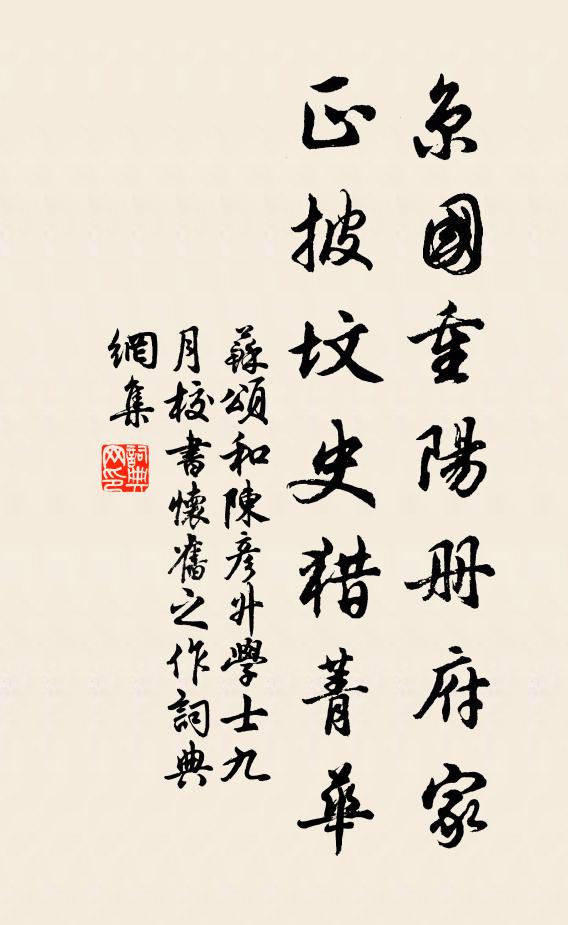 京國重陽册府家
正披坟史猎菁華
蘇頌和陳彥升學士九
月校書懷舊之作詞典
網集
詞典
网印